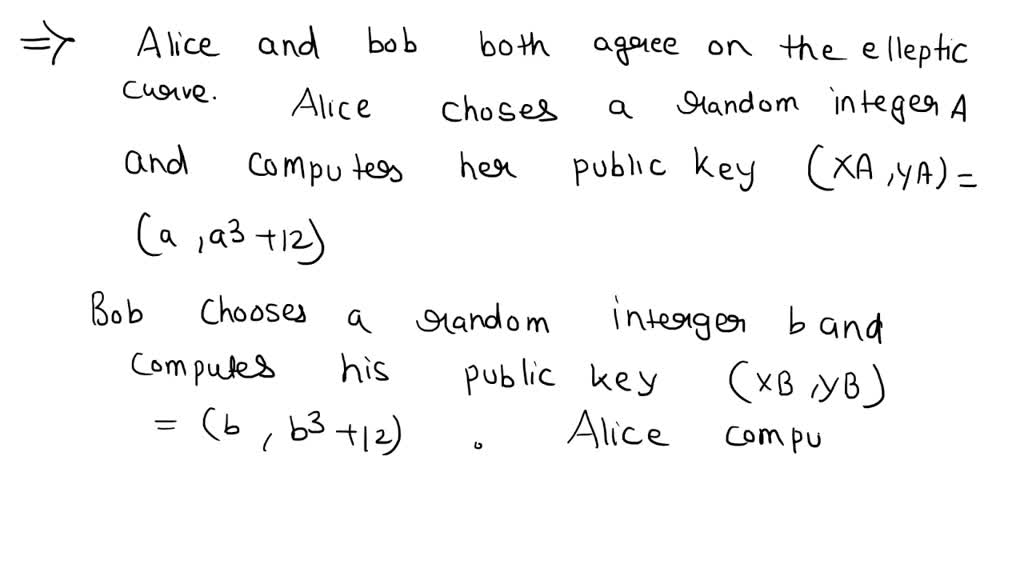 ⇒ Alice and bob both agree on the elleptic
curve. Alice choses a random integer A
and computers her public key (XA, yA) =
(a, a3 +12)
Bob Chooses a random interger b and
Computes his public key (XB, yB)
= (b, b3 +12) . Alice compu